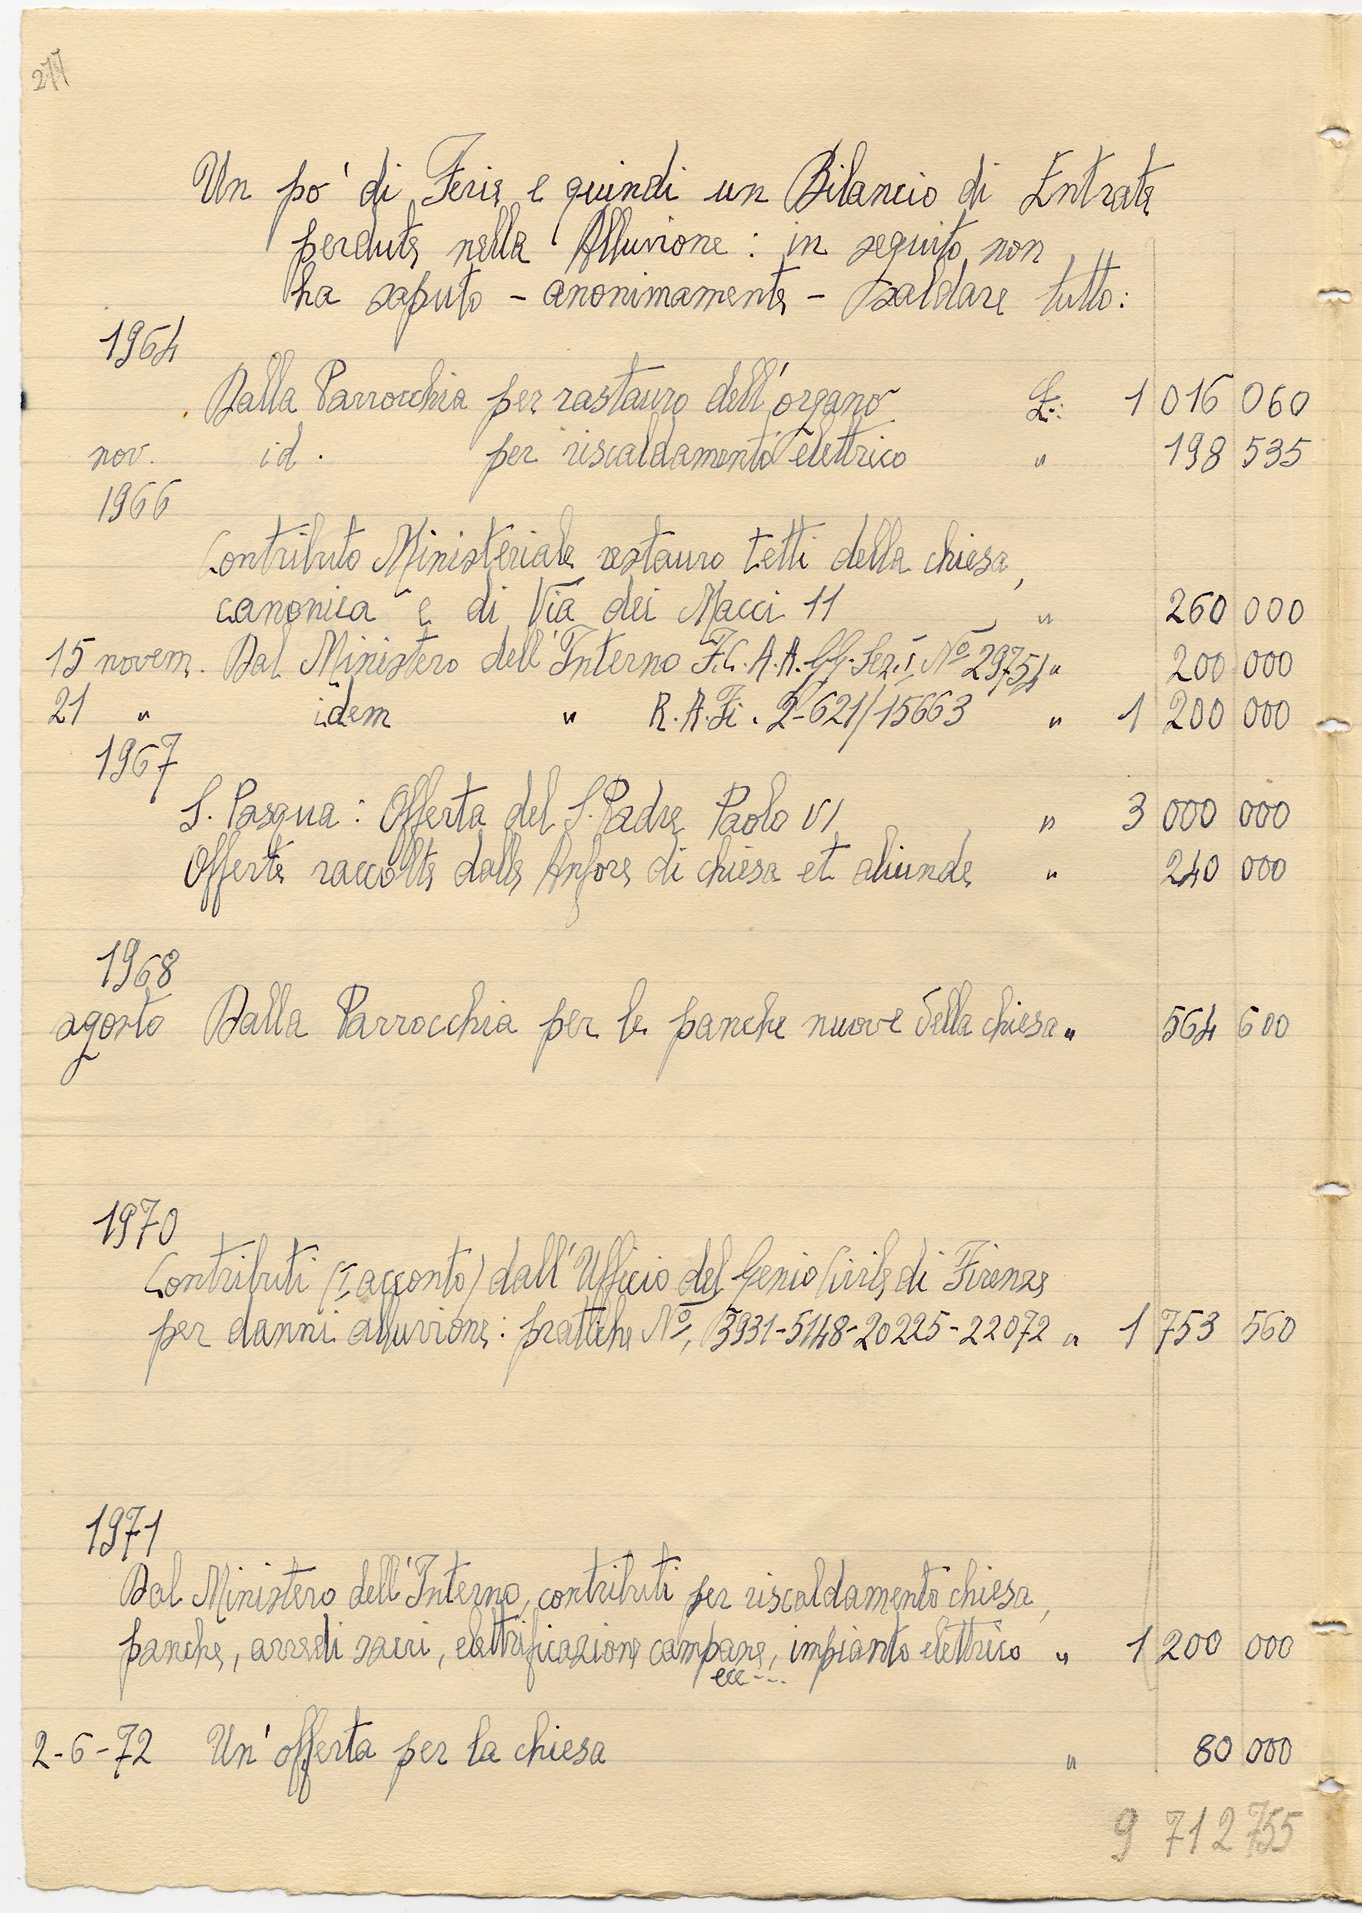 277
Un po' di Ferie e quindi un Bilancio di Entrate
perdute nella Alluvione: in seguito non
ha saputo - anonimamente - saldare tutto:
1964
Dalla Parrocchia per rastauro dell'organo £: 1 016 060
nov. id. per riscaldamento elettrico " 198 535
1966
Contributo Ministeriale restauro tetti della chiesa,
canonica e di Via dei Macci 11 " 260 000
15 novem. Dal Ministero dell'Interno F.C.A.A.GG. Sez. I Nº 29751 " 200 000
21 " idem " R.A.Fi. 2-621/15663 " 1 200 000
1967
S. Pasqua: Offerta del S. Padre Paolo VI " 3 000 000
Offerte raccolte dalle Anfore di chiesa et aliunde " 240 000
1968
agosto Dalla Parrocchia per le panche nuove della chiesa " 564 600
1970
Contributi (I acconto) dall'Ufficio del Genio Civile di Firenze
per danni alluvione: pratiche Nº, 3931-5148-20225-22072 " 1 753 560
1971
Dal Ministero dell'Interno, contributi per riscaldamento chiesa,
panche, arredi sacri, elettrificazione campane, impianto elettrico " 1 200 000
ecc---
2-6-72 Un'offerta per la chiesa " 80 000
9 712 755